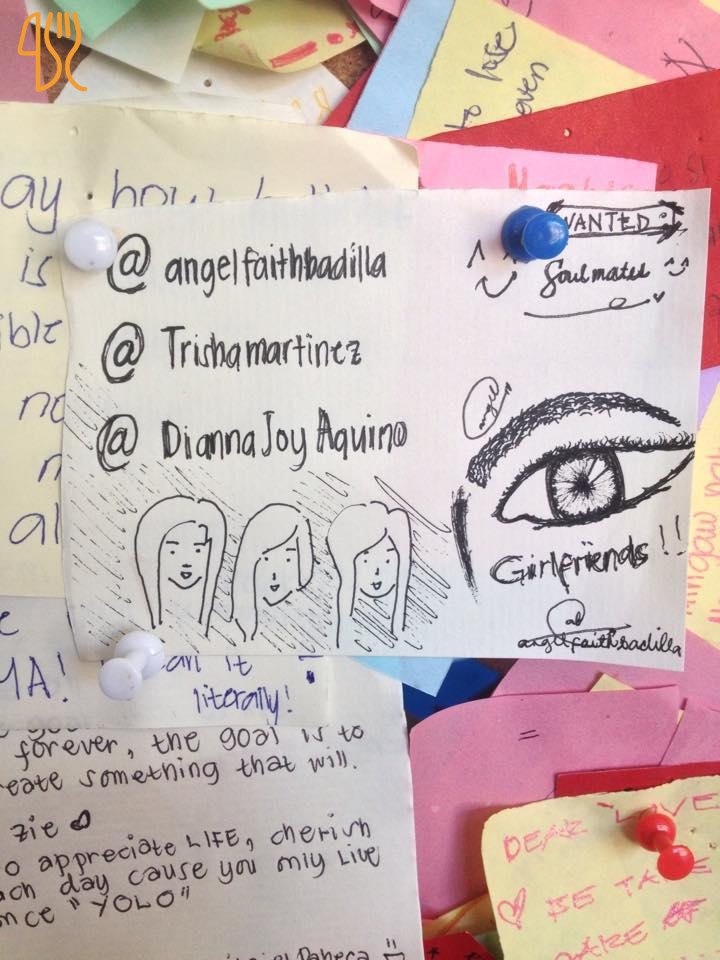 to
even
ay how
is
ible
@ angelfaithbadilla
@ Trishamartinez
@ Dianna Joy Aquino
WANTED
Soulmates
angel
Girlfriends !!
@
angelfaithbadilla
no
al
MA!
it
literally!
forever, the goal is to
eate something that will.
zie
o appreciate LIFE, cherish
ach day cause you only Live
nce "YOLO"
DEAR LOVE
BE